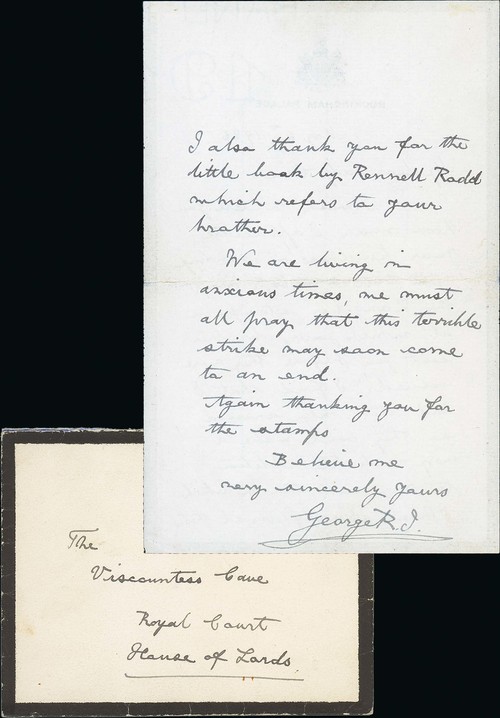 I also thank you for the
little book by Rennell Rodd
which refers to your
brother.
We are living in
anxious times, we must
all pray that this terrible
strike may soon come
to an end.
Again thanking you for
the stamps
Believe me
very sincerely yours
George R.I.
The
Viscountess Cave
Royal Court
House of Lords